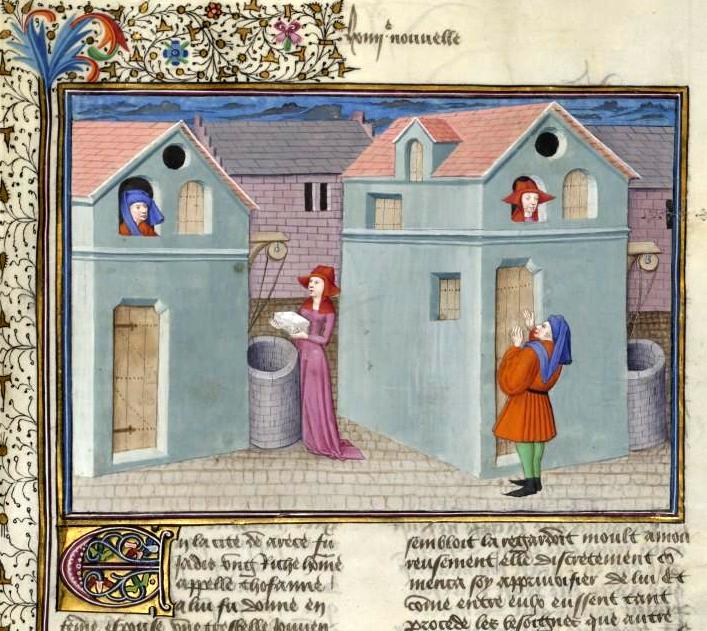 nouuelle
En la cite de arece fu
jadis vng riche home
appelle thofanne
a lui fu donne en
espouse vne tresbelle jouuen
sembloit la regardoit moult amou
reusement elle discretement co
menca soy appriuoisier de lui Et
come entre eulx eussent tant
procede les besoignes que autre